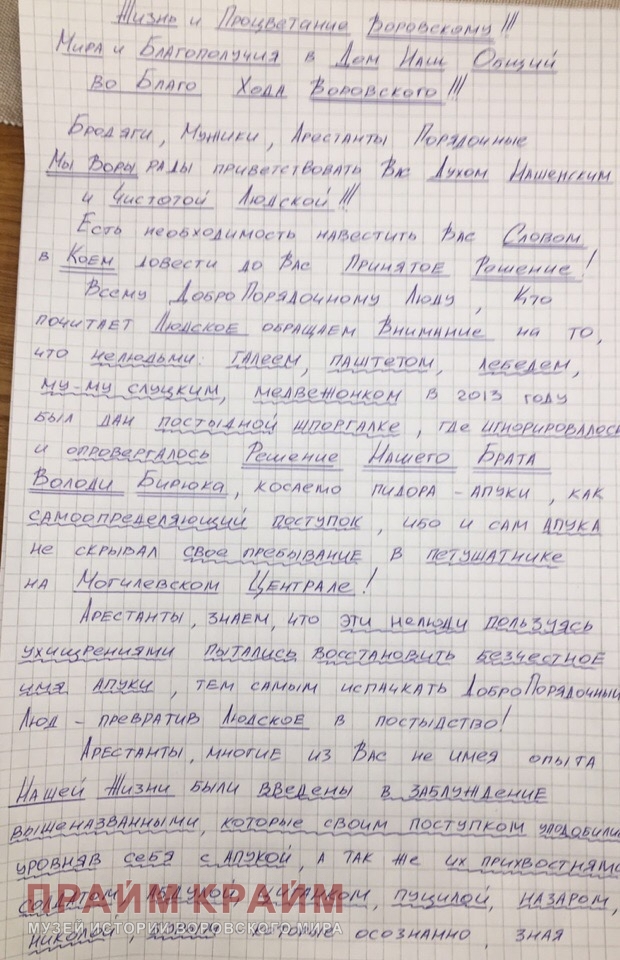 Жизнь и Процветание Воровскому!!!
Мира и Благополучия в Дом Наш Общий
во Благо Хода Воровского!!!
Бродяги, Мужики, Арестанты Порядочные
Мы Воры рады приветствовать Вас Духом Нашенским
и Чистотой Людской!!!
Есть необходимость навестить Вас Словом
в Коем довести до Вас Принятое Решение!
Всему ДоброПорядочному Люду, Кто
почитает Людское обращаем Внимание на то,
что нелюдьми: галеем, паштетом, лебедем,
му-му слуцким, медвежонком в 2013 году
был дан постыдной шпоргалке, где игнорировалось
и опровергалось Решение Нашего Брата
Володи Бирюка, косаемо пидора-апуки, как
самоопределяющий поступок, ибо и сам апука
не скрывал свое пребывание в петушатнике
на Могилевском Централе!
Арестанты, знаем, что эти нелюди пользуясь
ухищрениями пытались восстановить безчестное
имя апуки, тем самым испачкать ДоброПорядочный
Люд - превратив Людское в постыдство!
Арестанты, многие из Вас не имея опыта
Нашей Жизни были введены в заблуждение
вышеназванными, которые своим поступком уподобили
уровняв себя с апукой, а так же их прихвостнями
солдатом, абдулой, циганком, пуцилой, назаром,
николой, которые осознанно, зная
ПРАЙМ КРАЙМ
МУЗЕЙ ИСТОРИИ ВОРОВСКОГО МИРА